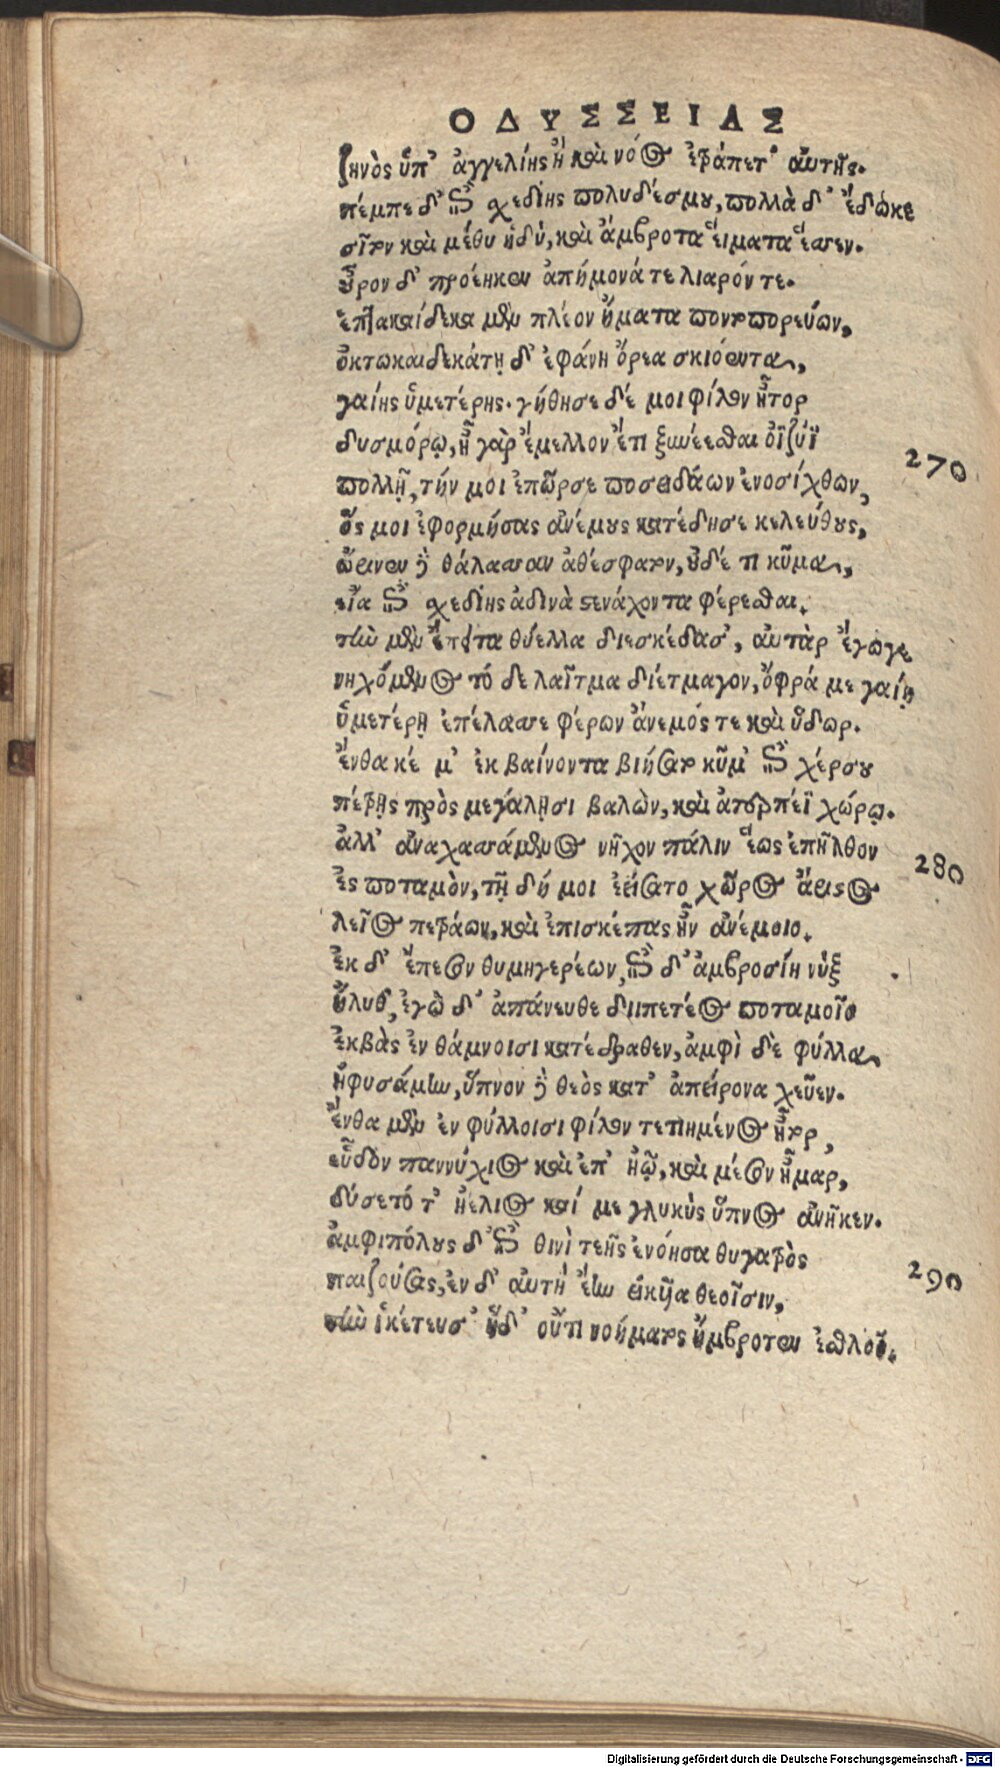 ΟΔΥΣΣΕΙΑΣ
ζηνὸς ὑπ' ἀγγελίης ἢ καὶ νόος ἐτράπετ' αὐτῆς.
πέμπε δ' ἐπὶ σχεδίης πολυδέσμου, πολλὰ δ' ἔδωκε
σῖτον καὶ μέθυ ἡδύ, καὶ ἄμβροτα εἵματα ἕσσεν.
οὖρον δ' προέηκεν ἀπήμονά τε λιαρόν τε.
ἑπτακαίδεκα μὲν πλέον ἤματα ποντοπορεύων,
ὀκτωκαιδεκάτῃ δ' ἐφάνη ὄρεα σκιόεντα,
γαίης ὑμετέρης. γήθησε δέ μοι φίλον ἦτορ
δυσμόρῳ, ἦ γὰρ ἔμελλον ἔτι ξυνέσεσθαι ὀϊζύϊ
πολλῇ, τήν μοι ἐπῶρσε ποσειδάων ἐνοσίχθων,
270
ὅς μοι ἐφορμήσας ἀνέμους κατέδησε κελεύθους,
ὤρινεν δὲ θάλασσαν ἀθέσφατον, οὐδέ τι κῦμα,
εἴα ἐπὶ σχεδίης ἀδινὰ στενάχοντα φέρεσθαι.
τὴν μὲν ἔπειτα θύελλα διεσκέδασ', αὐτὰρ ἔγωγε
νηχόμενος τό δε λαῖτμα διέτμαγον, ὄφρά με γαίῃ
ὑμετέρῃ ἐπέλασσε φέρων ἄνεμός τε καὶ ὕδωρ.
ἔνθα κέ μ' ἐκβαίνοντα βιήσατο κῦμ' ἐπὶ χέρσου
πέτρῃς πρὸς μεγάλῃσι βαλὼν, καὶ ἀτερπέϊ χώρῳ.
ἀλλ' ἀναχασσάμενος νῆχον πάλιν ἕως ἐπῆλθον
280
ἐς ποταμὸν, τῇ δή μοι ἐείσατο χῶρος ἄριστος
λεῖος πετράων, καὶ ἐπισκέπας ἦν ἀνέμοιο.
ἐκ δ' ἔπεσον θυμηγερέων, ἐπὶ δ' ἀμβροσίη νύξ
ἤλυθ', ἐγὼ δ' ἀπάνευθε διιπετέος ποταμοῖο
ἐκβὰς ἐν θάμνοισι κατέδραθεν, ἀμφὶ δὲ φύλλα
ἠφυσάμην, ὕπνον δὲ θεὸς κατ' ἀπείρονα χεῦεν.
ἔνθα μὲν ἐν φύλλοισι φίλον τετιημένος ἦτορ,
εὗδον παννύχιος καὶ ἐπ' ἠῶ, καὶ μέσον ἦμαρ,
δύσετό τ' ἠέλιος καί με γλυκὺς ὕπνος ἀνῆκεν.
ἀμφιπόλους δ' ἐπὶ θινὶ τεῆς ἐνόησα θυγατρὸς
290
παιζούσας, ἐν δ' αὐτὴ ἔην εἰκυῖα θεοῖσιν,
τὴν ἱκέτευσ' ἡδ' οὔτι νοήματος ἤμβροτεν ἐσθλοῦ.
Digitalisierung gefördert durch die Deutsche Forschungsgemeinschaft - DFG